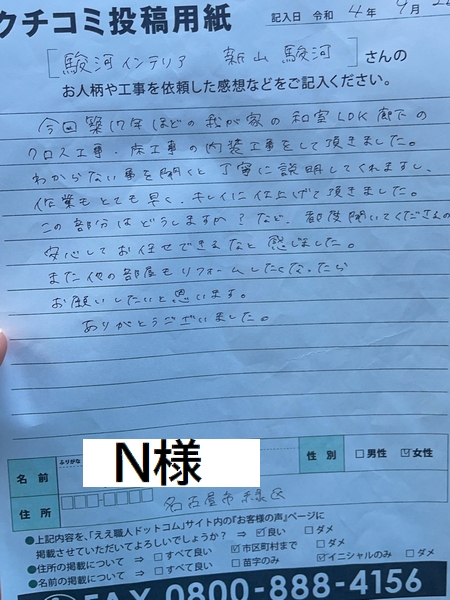 クチコミ投稿用紙
記入日 令和 4年 9月
[駿河インテリア 新山 駿河]さんの
お人柄や工事を依頼した感想などをご記入ください。
今回築17年ほどの我が家の和室LDK廊下の
クロス工事・床工事の内装工事をして頂きました。
わからない事を聞くと丁寧に説明してくれますし、
作業もとても早く、キレイに仕上げて頂きました。
この部分はどうしますか?など、都度聞いてくださるの
安心してお任せできるなと感じました。
また他の部屋もリフォームしたくなったら
お願いしたいと思います。
ありがとうございました。
ふりがな
名前 N様 性別 □男性 ☑女性
住所 名古屋市緑区
●上記内容を、「ええ職人ドットコム」サイト内の『お客様の声』ページに
掲載させていただいてよろしいでしょうか? ⇒ ☑良い □ダメ
●住所の掲載について ⇒ □すべて良い ☑市区町村まで □ダメ
●名前の掲載について ⇒ □すべて良い □苗字のみ ☑イニシャルのみ □ダメ
FAX 0800-888-4156